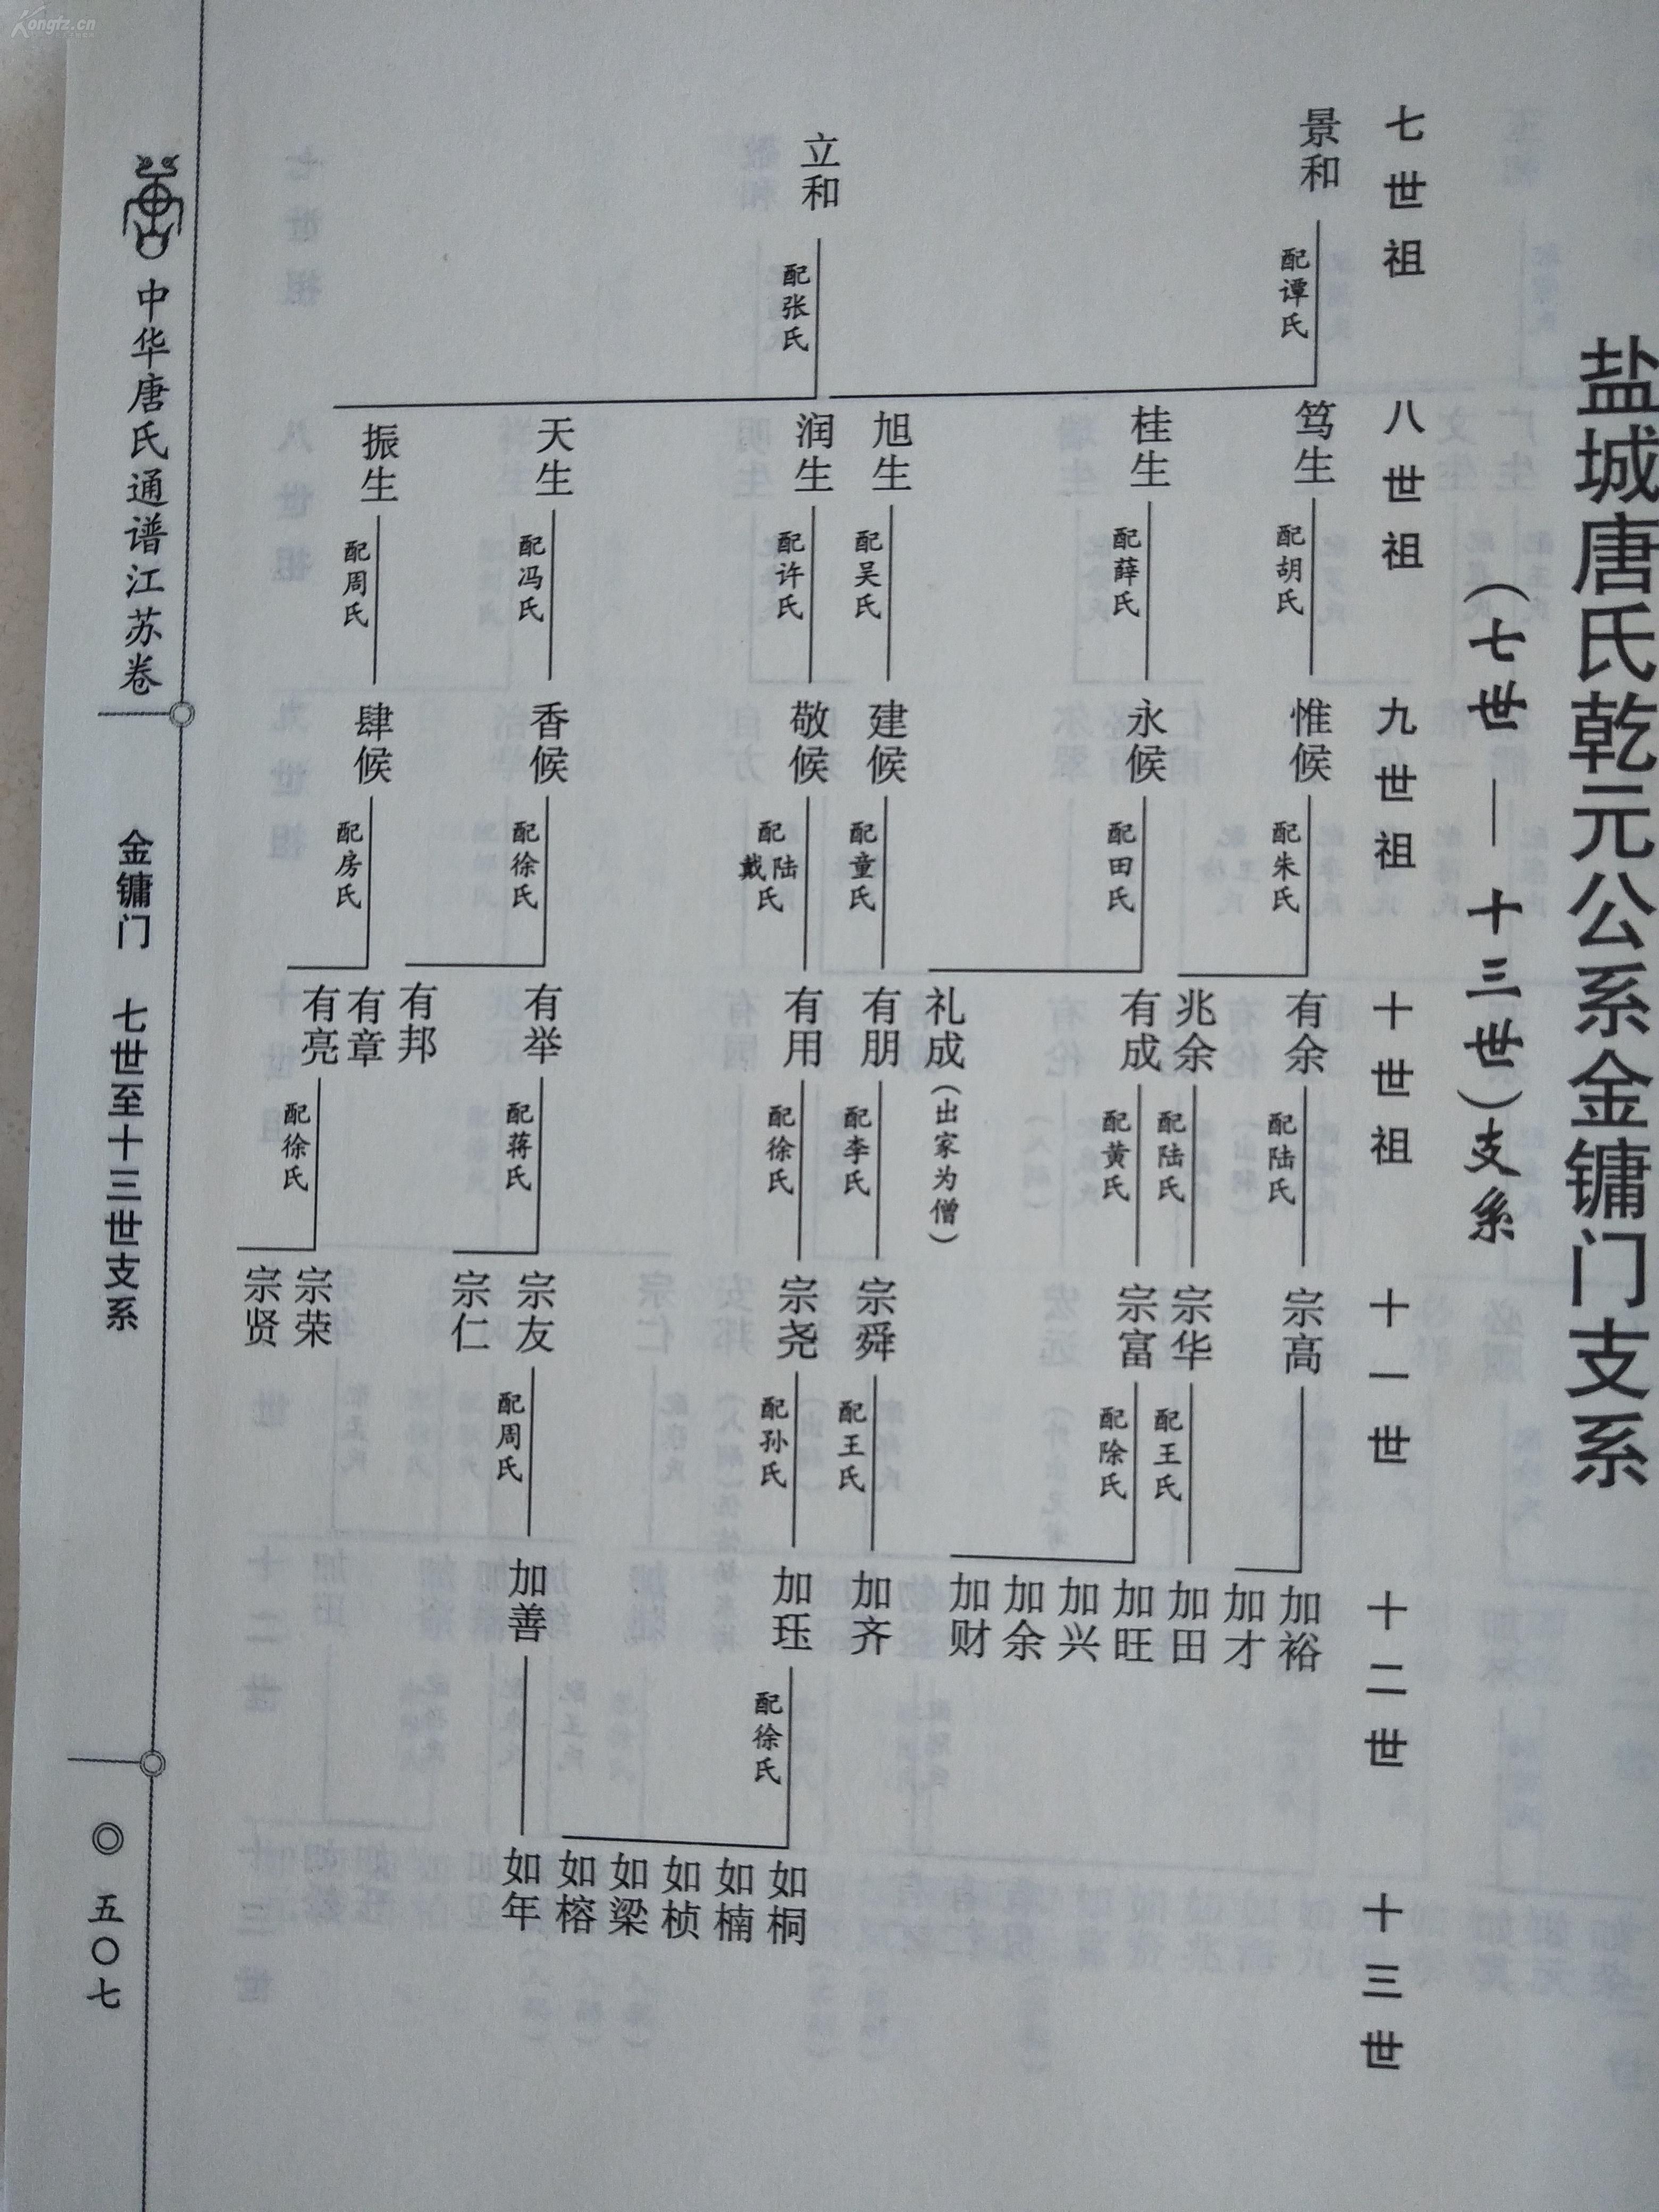 盐城唐氏乾元公系金镛门支系
（七世—十三世）支系
七世祖
八世祖
九世祖
十世祖
十一世
十二世
十三世
景和
配谭氏
立和
配张氏
笃生
配胡氏
桂生
配薛氏
旭生
配吴氏
润生
配许氏
天生
配冯氏
振生
配周氏
惟候
配朱氏
永候
配田氏
建候
配童氏
敬候
配陆戴氏
香候
配徐氏
肆候
配房氏
有余
配陆氏
兆余
配陆氏
有成
配黄氏
礼成（出家为僧）
有朋
配李氏
有用
配徐氏
有举
配蒋氏
有邦
有章
有亮
配徐氏
宗高
宗华
配王氏
宗富
配除氏
宗舜
配王氏
宗尧
配孙氏
宗友
配周氏
宗仁
宗荣
宗贤
加裕
加才
加田
加旺
加兴
加余
加财
加齐
加珏
配徐氏
加善
如桐
如楠
如桢
如梁
如榕
如年
中华唐氏通谱江苏卷
金镛门 七世至十三世支系
◎五〇七
Kongfz.cn